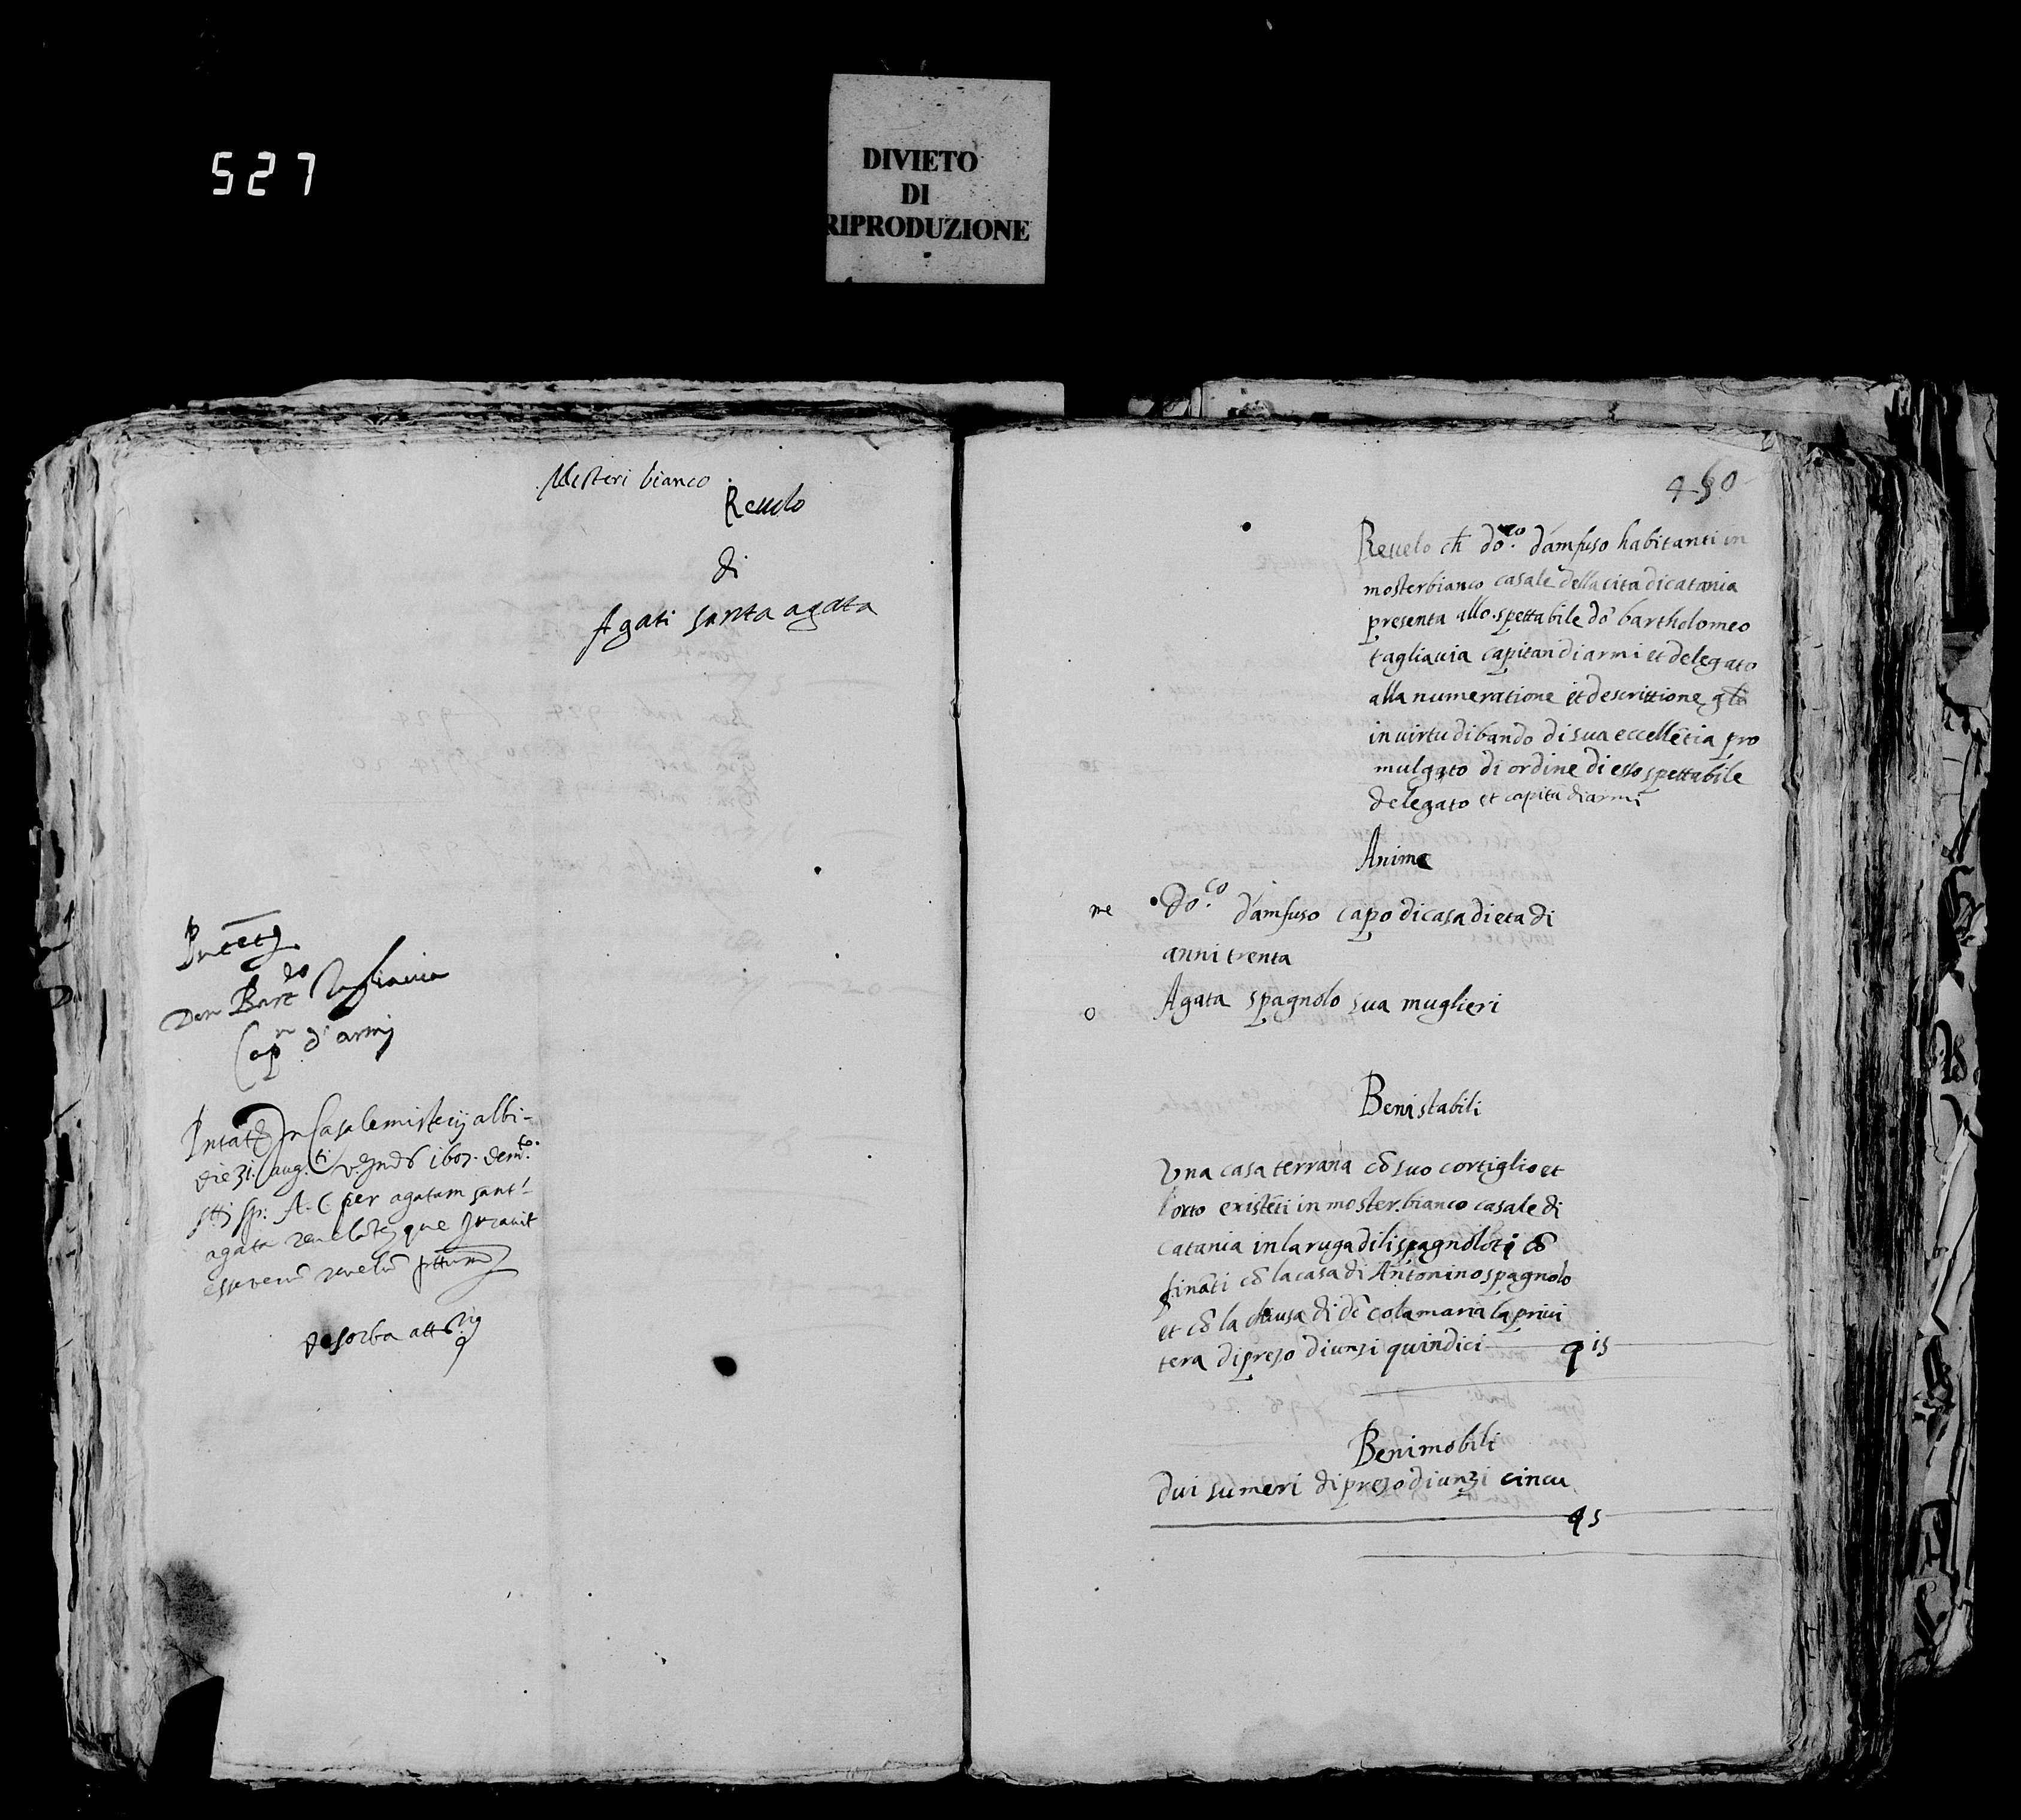 527
DIVIETO
DI
RIPRODUZIONE
Misteri bianco
Revelo
di
Agati santa agata
Don Bart.do Tagliavia
Cap.n d'armi
In Casale misterij albi
die 31 aug.ti 1607.
sp: A. C per agatam sant
agata que Juravit
esse verum
450
Revelo ch do.co d'amfuso habitanti in
mosterbianco casale della cita di catania
presenta allo spettabile do bartholomeo
tagliavia capitan di armi et delegato
alla numeratione et descrittione
in virtu di bando di sua eccelletia pro
mulgato di ordine di esso spettabile
delegato et capita di armi
Anime
me Do.co d'amfuso capo di casa di eta di
anni trenta
o Agata spagnolo sua muglieri
Beni stabili
Una casa terrana co suo cortiglio et
l'orto existeti in moster bianco casale di
catania in la ruga di li spagnoloti co
finati co la casa di Antonino spagnolo
et co la chiusa di colamaria la privi
tera di prezo di unzi quindici 15
Beni mobili
dui sumeri di prezo di unzi cincu
5